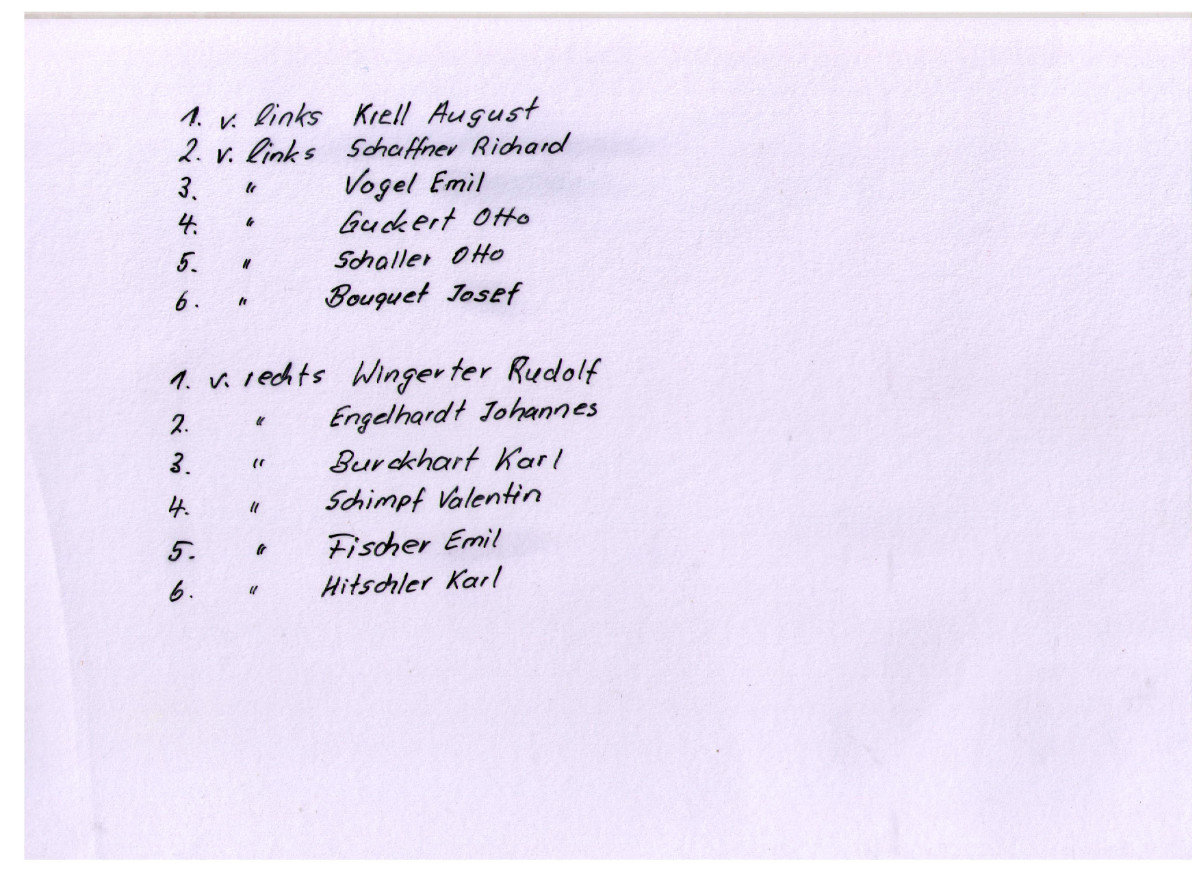 1. v. links Krell August
2. v. links Schaffner Richard
3. " Vogel Emil
4. " Guckert Otto
5. " Schaller Otto
6. " Bouquet Josef
1. v. rechts Wingerter Rudolf
2. " Engelhardt Johannes
3. " Burckhart Karl
4. " Schimpf Valentin
5. " Fischer Emil
6. " Hitschler Karl